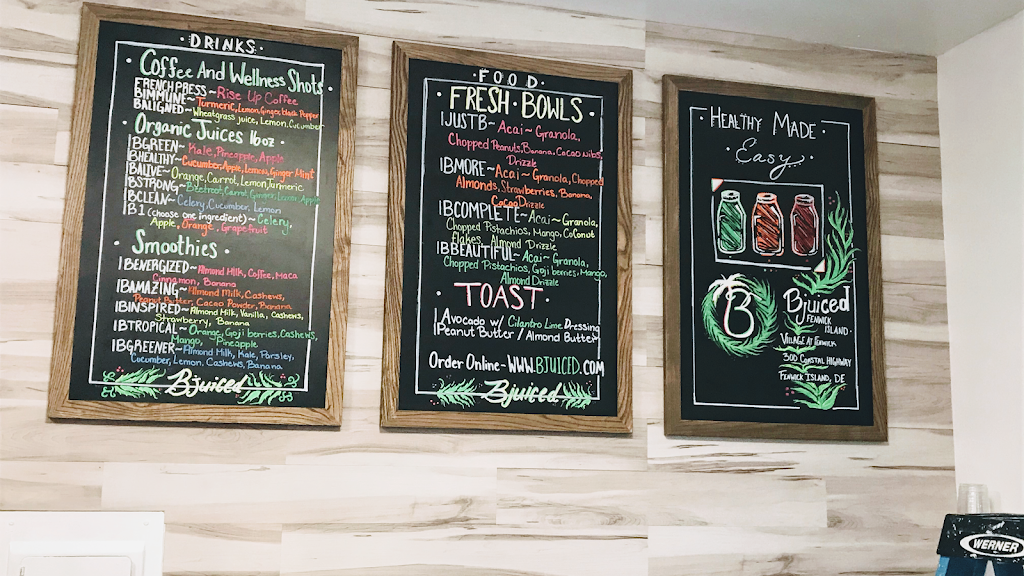 DRINKS
Coffee And Wellness Shots
FRENCH PRESS ~ Rise Up Coffee
BIMMUNE ~ Turmeric, Lemon, Ginger, black Pepper
BALIGNED ~ Wheatgrass juice, Lemon, Cucumber
Organic Juices 16oz
IBGREEN ~ Kale, Pineapple, Apple
BHEALTHY ~ Cucumber, Apple, Lemon, Ginger Mint
BALIVE ~ Orange, Carrot, Lemon, Turmeric
BSTRONG ~ Beetroot, Carrot, Ginger, Lemon Apple
BCLEAN ~ Celery, Cucumber, Lemon
IB1 (choose one ingredient) ~ Celery,
Apple, Orange, Grapefruit
Smoothies
IBENERGIZED ~ Almond Milk, Coffee, Maca
Cinnamon, Banana
IBAMAZING ~ Almond Milk, Cashews,
Peanut Butter, Cacao Powder, Banana
IBINSPIRED ~ Almond Milk, Vanilla, Cashews,
Strawberry, Banana
IBTROPICAL ~ Orange, Goji berries, Cashews,
Mango, Pineapple
IBGREENER ~ Almond Milk, Kale, Parsley,
Cucumber, Lemon, Cashews, Banana
Bjuiced
FOOD
FRESH BOWLS
IJUSTB ~ Acai ~ Granola,
Chopped Peanuts, Banana, Cacao Nibs,
Drizzle
IBMORE ~ Acai ~ Granola, Chopped
Almonds, Strawberries, Banana,
Cacao Drizzle
IBCOMPLETE ~ Acai ~ Granola,
Chopped Pistachios, Mango, Coconut
Flakes, Almond Drizzle
IBBEAUTIFUL ~ Acai ~ Granola,
Chopped Pistachios, Goji berries, Mango,
Almond Drizzle
TOAST
Avocado w/ Cilantro Lime Dressing
Peanut Butter / Almond Butter
Order Online - WWW.BJUICED.COM
Bjuiced
HEALTHY MADE
Easy
B
Bjuiced
FENWICK
ISLAND
VILLAGE AT FENWICK
300 COASTAL HIGHWAY
FENWICK ISLAND, DE
WERNER